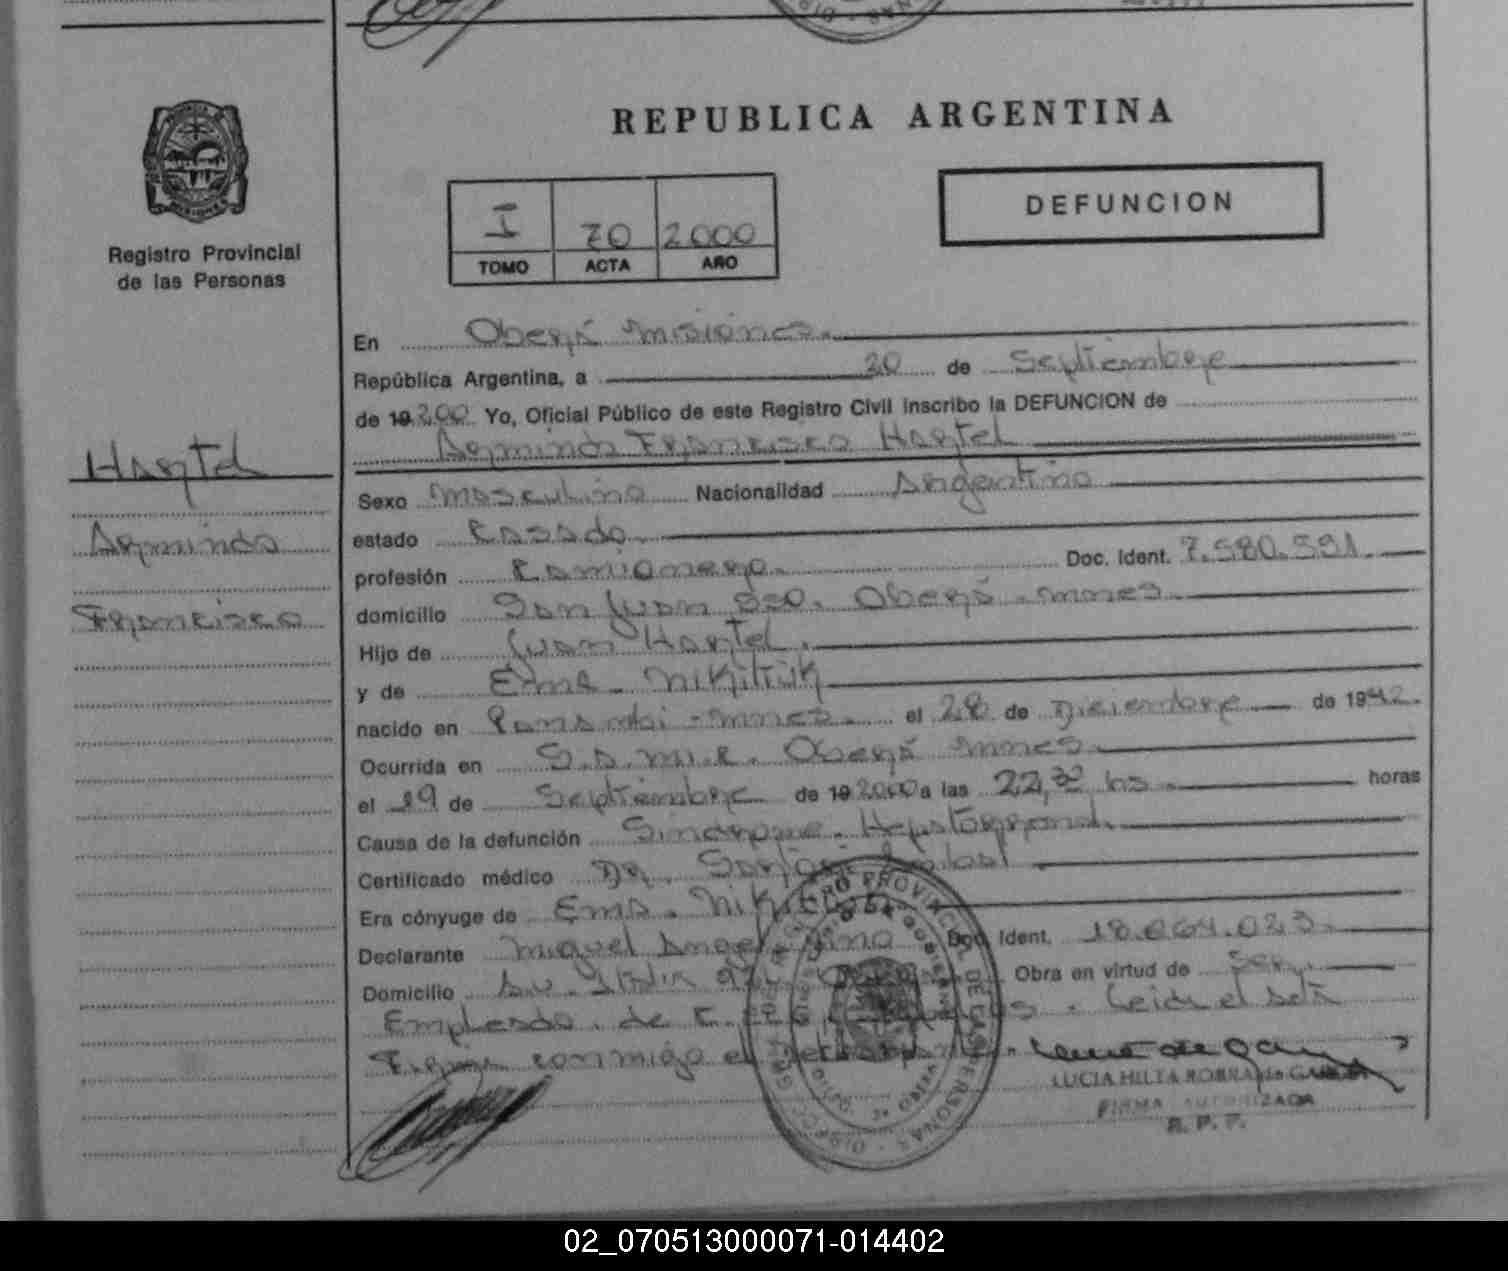 REPUBLICA ARGENTINA
Registro Provincial
de las Personas
I 70 2000
TOMO ACTA AÑO
DEFUNCION
En Oberá Misiones.
República Argentina, a 20 de Septiembre
de 19 2000 Yo, Oficial Público de este Registro Civil inscribo la DEFUNCION de
Armindo Francisco Hartel
Hartel
Armindo
Francisco
Sexo Masculino Nacionalidad Argentino
estado Casado.
profesión Camionero. Doc. Ident. 7.580.591.
domicilio San Juan Oberá - Mnes.
Hijo de Juan Hartel.
y de Ema Nikitiuk
nacido en Panambi - Mnes. el 28 de Diciembre de 1942.
Ocurrida en Oberá Mnes.
el 19 de Septiembre de 19 2000 a las 22,30 hs. horas
Causa de la defunción Sindrome. Hepatorrenal.
Certificado médico Dr.
Era cónyuge de Ema.
Declarante Miguel Angel Doc. Ident. 18.064.023.
Domicilio Av. Italia Obra en virtud de ser
Empleado de Leida el acta
Firma conmigo el
LUCIA HILTA
FIRMA AUTORIZADA
R. P. P.
REGISTRO PROVINCIAL DE LAS PERSONAS
02_070513000071-014402